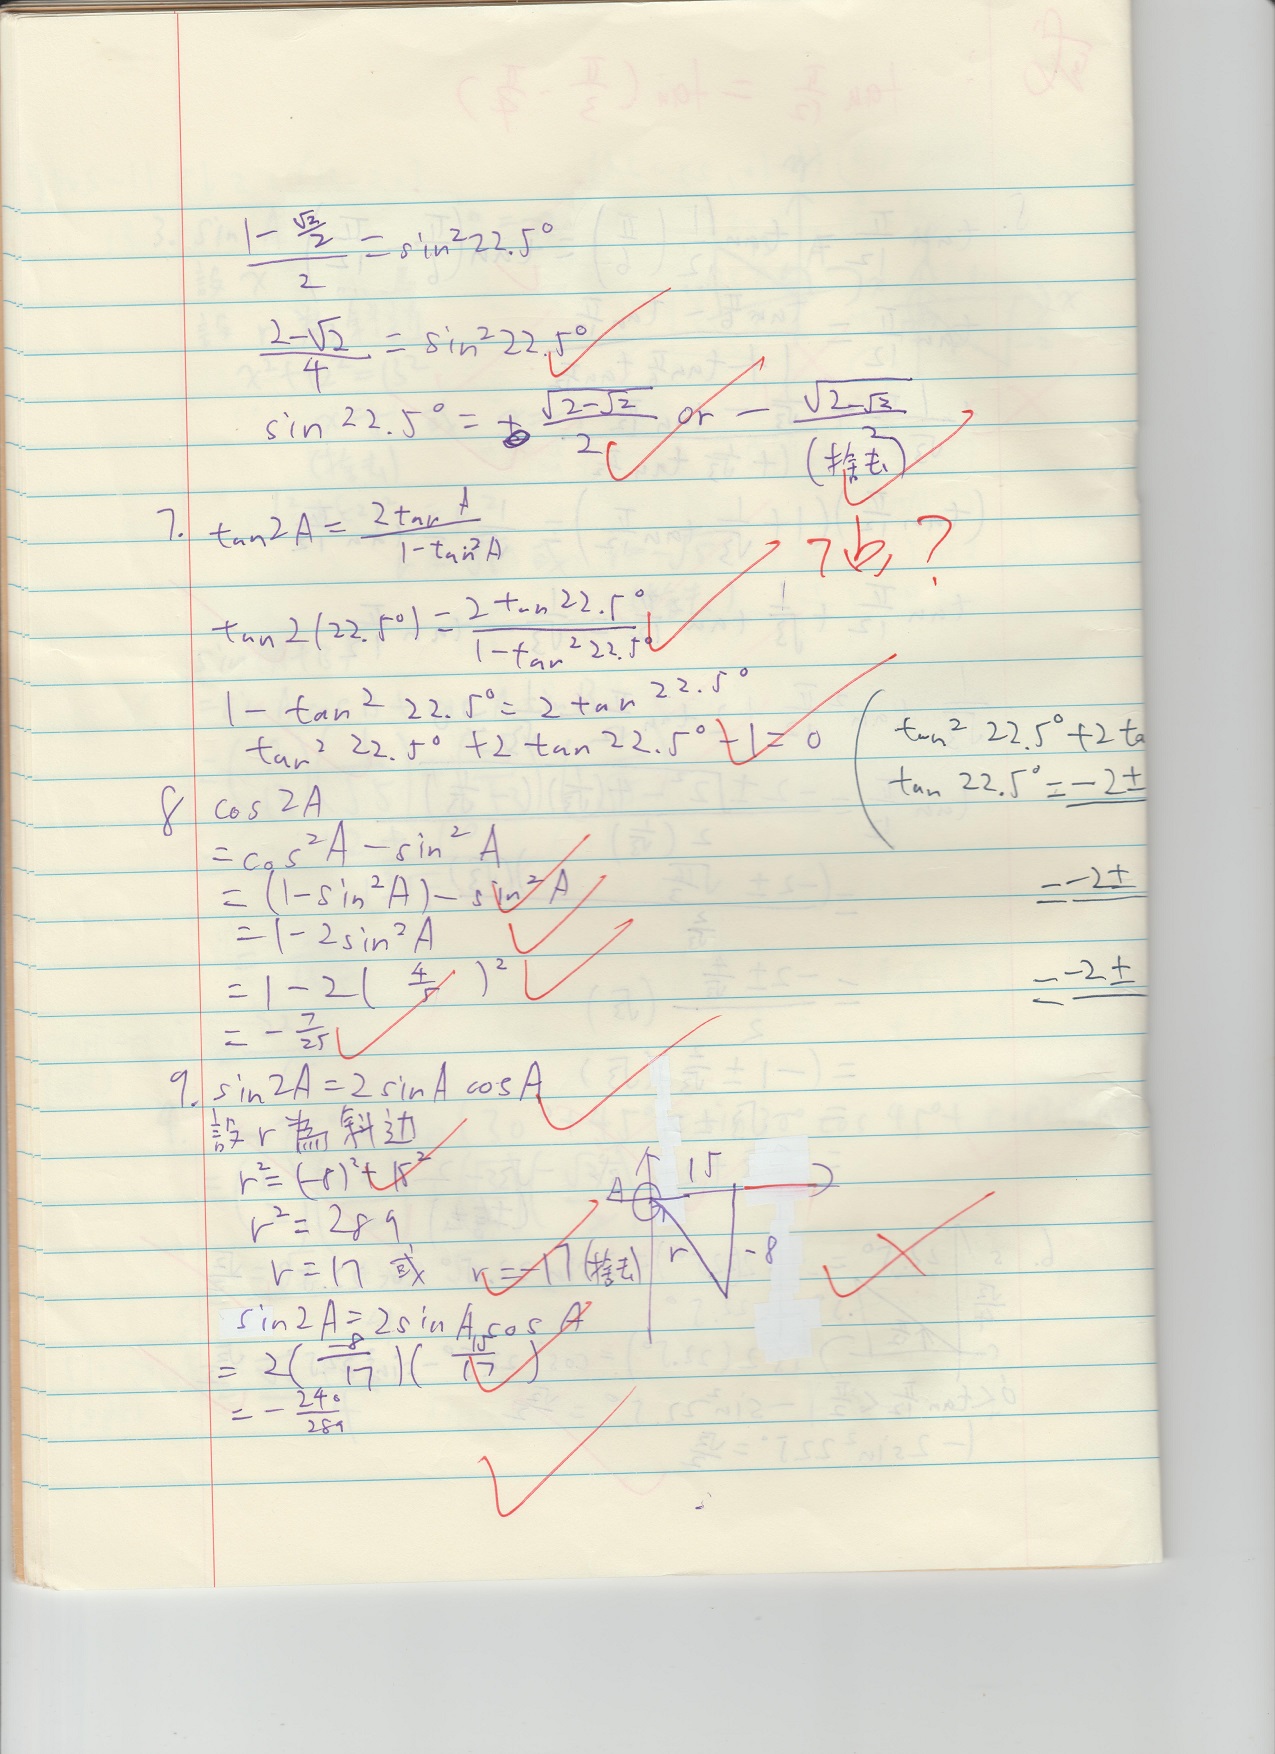 (1 - √2/2)/2 = sin² 22.5°
(2-√2)/4 = sin² 22.5°
sin 22.5° = + √(2-√2)/2 or - √(2-√2)/2
(捨去)
7. tan2A = 2tan A/(1-tan²A)
7b, ?
tan2(22.5°) = 2 tan 22.5°/(1-tan² 22.5°)
1 - tan² 22.5° = 2 tan 22.5°
tan² 22.5° + 2 tan 22.5° - 1 = 0
(tan² 22.5° + 2 ta
tan 22.5° = -2 ±
= -2 ±
= -2 ±
8 cos 2A
= cos²A - sin² A
= (1-sin²A) - sin²A
= 1 - 2sin²A
= 1 - 2( 4/5 )²
= - 7/25
9. sin2A = 2 sinA cosA
設 r 為斜边
r² = (-8)² + 15²
r² = 289
r = 17 或 r = -17 (捨去)
A 15
r -8
sin2A = 2sin A cos A
= 2( -8/17 )( 15/17 )
= - 240/289